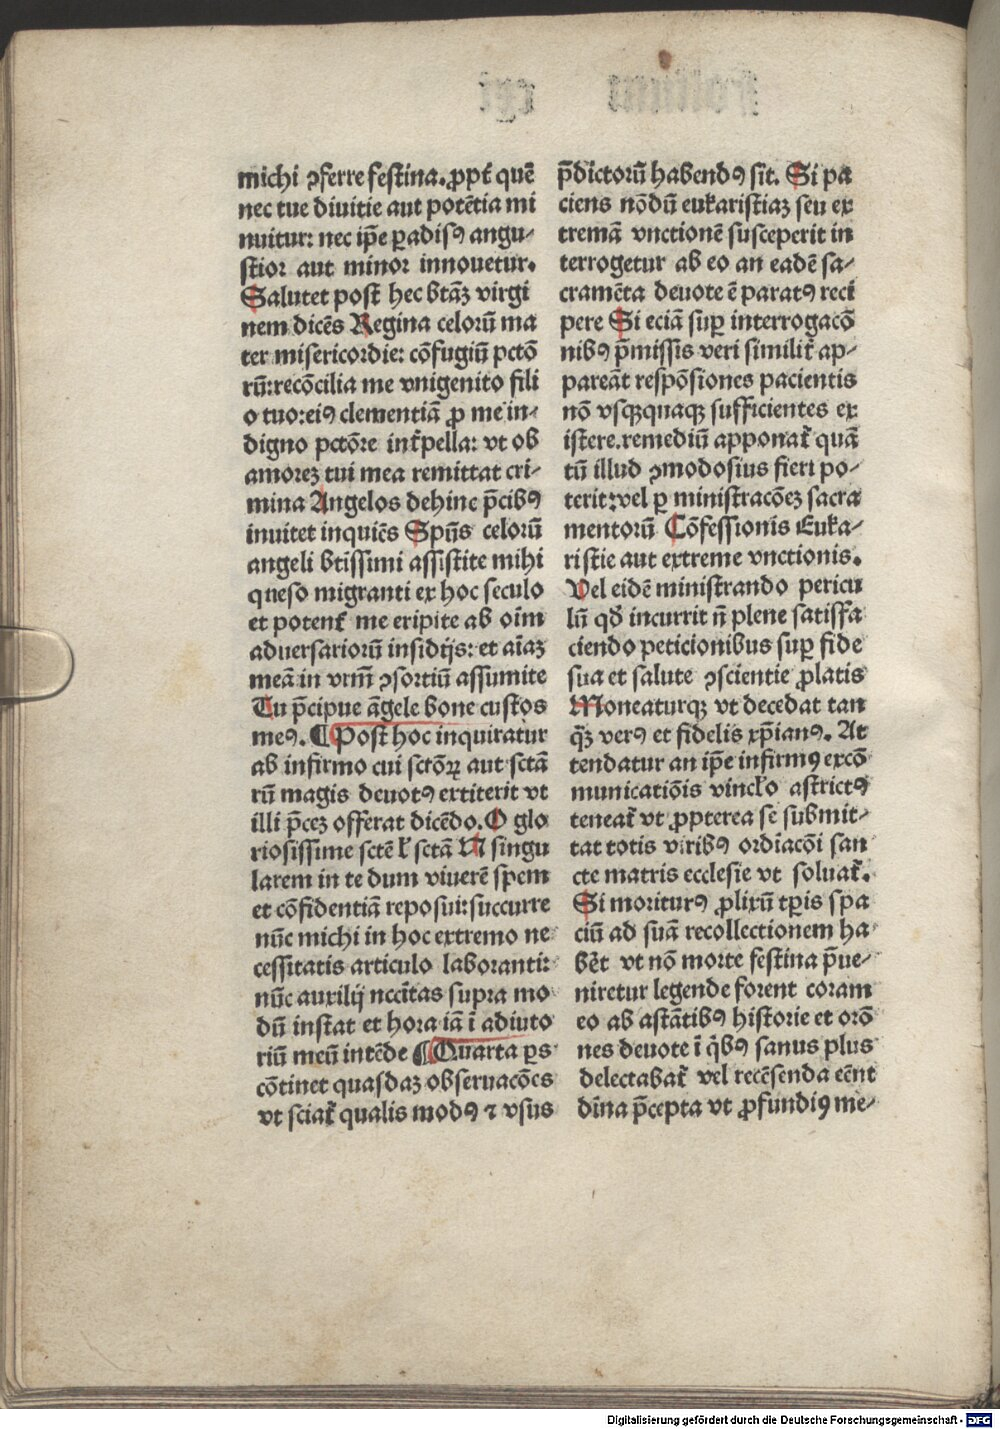 michi ꝯferre festina. ꝓpt̄ quē
nec tue diuitie aut potētia mi
nuitur: nec ip̄e ꝑadisꝰ angu⸗
stior aut minor innouetur.
Salutet post hec btāȝ virgi
nem dicēs Regina celorū ma
ter misericordie: cōfugiū pctō
rū: recōcilia me vnigenito fili
o tuo: eiꝰ clementiā ꝓ me in⸗
digno pctōre int̄pella: vt ob
amoreȝ tui mea remittat cri⸗
mina Angelos dehinc p̄cibꝰ
inuitet inquiēs Spūs celorū
angeli btīssimi assistite mihi
queso migranti ex hoc seculo
et potent̄ me eripite ab oīm
aduersariorū insidijs: et aīaȝ
meā in vrm̄ ꝯsortiū assumite
Tu p̄cipue āgele bone custos
meꝰ. ¶ Post hoc inquiratur
ab infirmo cui sctōꝝ aut sctā
rū magis deuotꝰ extiterit vt
illi p̄ceȝ offerat dicēdo. O glo
riosissime sctē ł sctā N singu
larem in te dum viuerē spem
et cōfidentiā reposui: succurre
nūc michi in hoc extremo ne
cessitatis articulo laboranti:
nūc auxilij nccītas supra mo
dū instat et hora iā ī adiuto
riū meū intēde ¶ Quarta ꝑs
cōtinet quasdaȝ obseruacōes
vt sciat̄ qualis modꝰ ⁊ vsus
p̄dictorū habendꝰ sit. Si pa
ciens nōdū eukaristiaȝ seu ex
tremā vnctionē susceperit in
terrogetur ab eo an eadē sa⸗
cramēta deuote ē paratꝰ reci
pere Si eciā suꝑ interrogacō
nibꝰ p̄missis veri similit̄ ap⸗
pareāt respōsiones pacientis
nō vsqȝquaqȝ sufficientes ex
istere. remediū apponat̄ quā
tū illud ꝯmodosius fieri po⸗
terit: vel ꝑ ministracōeȝ sacra
mentorū Cōfessionis Euka⸗
ristie aut extreme vnctionis.
Vel eidē ministrando pericu
lū qd̄ incurrit n̄ plene satisfa
ciendo peticionibus suꝑ fide
sua et salute ꝯscientie ꝓlatis
Moneaturqȝ vt decedat tan
q̄ȝ verꝰ et fidelis xp̄ianꝰ. At
tendatur an ip̄e infirmꝰ excō
municatiōis vincl̄o astrictꝰ
teneat̄ vt ꝓpterea se submit⸗
tat totis viribꝰ ordīacōi san
cte matris ecclesie vt soluat̄.
Si moriturꝰ ꝓlixū tꝑis spa
ciū ad suā recollectionem ha
bēt vt nō morte festina p̄ue⸗
niretur legende forent coram
eo ab astātibꝰ historie et orō
nes deuote ī q̇bꝰ sanus plus
delectabat̄ vel recēsenda eēnt
dīna p̄cepta vt ꝓfundiꝰ me⸗
Digitalisierung gefördert durch die Deutsche Forschungsgemeinschaft - DFG